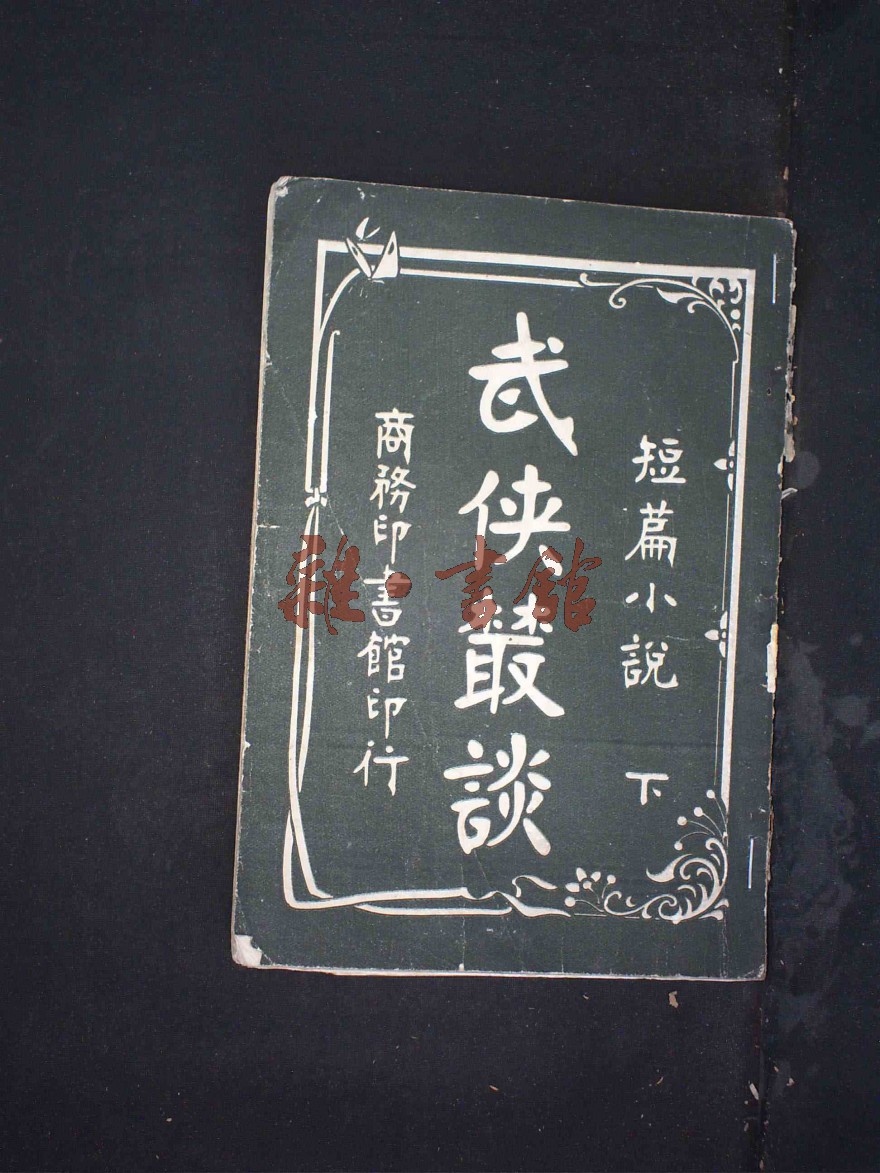 短篇小說 下
武俠叢談
商務印書館印行
雜·書館